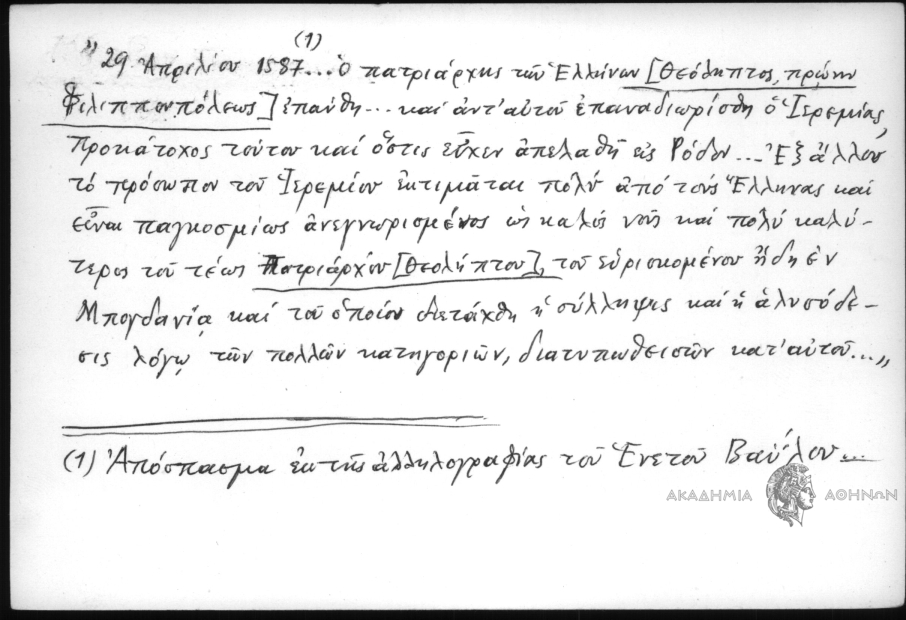 (1)
„29 Ἀπριλίου 1587... ὁ πατριάρχης τῶν Ἑλλήνων [Θεόληπτος, πρώην
Φιλιππουπόλεως] ἐπαύθη... καὶ ἀντ' αὐτοῦ ἐπαναδιωρίσθη ὁ Ἱερεμίας,
προκάτοχος τούτου καὶ ὅστις εἶχεν ἀπελαθῆ εἰς Ρόδον... Ἐξ ἄλλου
τό πρόσωπον τοῦ Ἱερεμίου ἐκτιμᾶται πολύ ἀπό τούς Ἕλληνας καί
εἶναι παγκοσμίως ἀνεγνωρισμένος ὡς καλός νοῦς καί πολύ καλύ-
τερος τοῦ τέως Πατριάρχου [Θεολήπτου], τοῦ εὑρισκομένου ἤδη ἐν
Μπογδανίᾳ καί τοῦ ὁποίου διετάχθη ἡ σύλληψις καί ἡ ἁλυσόδε-
σις λόγῳ τῶν πολλῶν κατηγοριῶν, διατυπωθεισῶν κατ' αὐτοῦ...„
(1) Ἀπόσπασμα ἐκ τῆς ἀλληλογραφίας τοῦ Ἑνετοῦ Βαΐλου...
ΑΚΑΔΗΜΙΑ ΑΘΗΝΩΝ